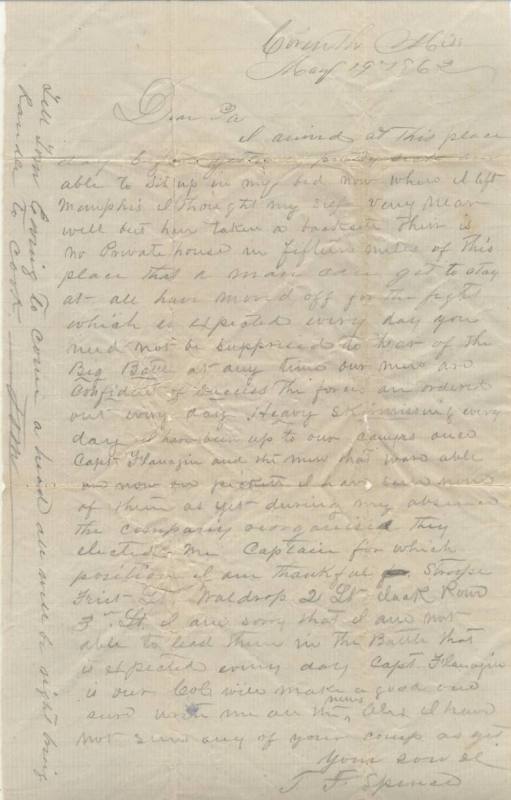 Corinth Miss
May 19th 1862
Dear Pa
I arived at this place
day before yesterday pretty sick am
able to Sit up in my bed now when I left
Memphis I thought my self very near
well but hav taken a backset ther is
no Private house in fifteen miles of this
place that a man can get to stay
at all have moved off for the fight
which is expected every day you
need not be suppresed to hear of the
Big Batle at any time our men are
Confident of success the forces are ordered
out every day Heavy skirmissing every
day I have been up to our camps once
Capt Flanagin and the men that ware able
are now on pickett I have seen none
of them as yet during my absence
the company reorganised they
elected me Captain for which
position I am thankful Stroope
First Lt Waldrop 2 Lt Jack Rowe
3rd Lt I am sorry that I am not
able to lead them in the Battle that
is expected every day Capt Flanagin
is our Col will make a good one
sure write me all the news Also I have
not seen any of your comp as yet
Your son &c
J F Spence
Tell Tom to come a head all will be right bring
to cook